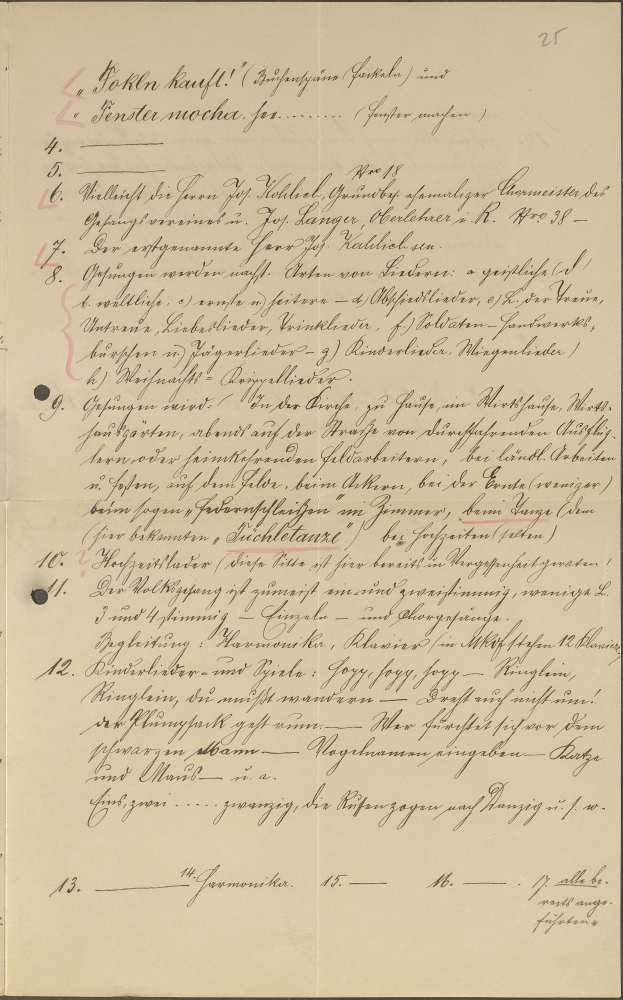 25
„Tokln kauft!“ (Buchenspäne (Fackeln) und
„Fenster mocha. hee........ (Fenster machen)
4. ———
5. ———
Nro 18
6. Vielleicht die Herrn Jos. Grundbes. ehemaliger Chormeister des
Gesangsvereines u. Jos. Langer, Oberlehrer i. R. Nro 38 —
7. Der erstgenannte Herr Jos. sen.
8. Gesungen werden nachst. Arten von Liedern: a geistliche (d /
b. weltliche. c) ernste u) heitere — d) Abschiedslieder, e) L. der Treue,
Untreue, Liebeslieder, Trinklieder. f) Soldaten – Handwerks-
burschen u.) Jägerlieder – g) Kinderlieder. Wiegenlieder)
h) Weihnachts = Krippellieder.
9. Gesungen wird: In der Kirche, zu Hause, im Wirtshause, Wirts-
hausgärten, abends auf der Straße von durchfahrenden Ausflüg-
lern oder heimkehrenden Feldarbeitern, bei ländl. Arbeiten
u. Festen, auf dem Felde, beim Ackern, bei der Ernte (weniger)
beim sogen „Federnschleißen“ im Zimmer, beim Tanze (dem
(hier bekannten „Tüchletanze“) bei Hochzeiten (selten)
10. Hochzeitslader (diese Sitte ist hier bereits in Vergessenheit geraten!
11. Der Volksgesang ist zumeist ein- und zweistimmig, wenige L.
3 und 4 stimmig — Einzeln – und Chorgesänge.
Begleitung: Harmonika, Klavier (in stehen 12 Klaviere)
12. Kinderlieder- und Spiele: Hopp, hopp, hopp — Ringlein,
Ringlein, du mußt wandern — Dreht euch nicht um!
der Plumpsack geht rum. — Wer fürchtet sich vor dem
schwarzen Mann. — Vogelnamen eingeben — Katze
und Maus — u. a.
Eins, zwei ..... zwanzig, die Russen zogen nach Danzig u. s. w.
13. ——— 14. Harmonika. 15. — 16. —. 17. alle be-
reits ange-
führten.